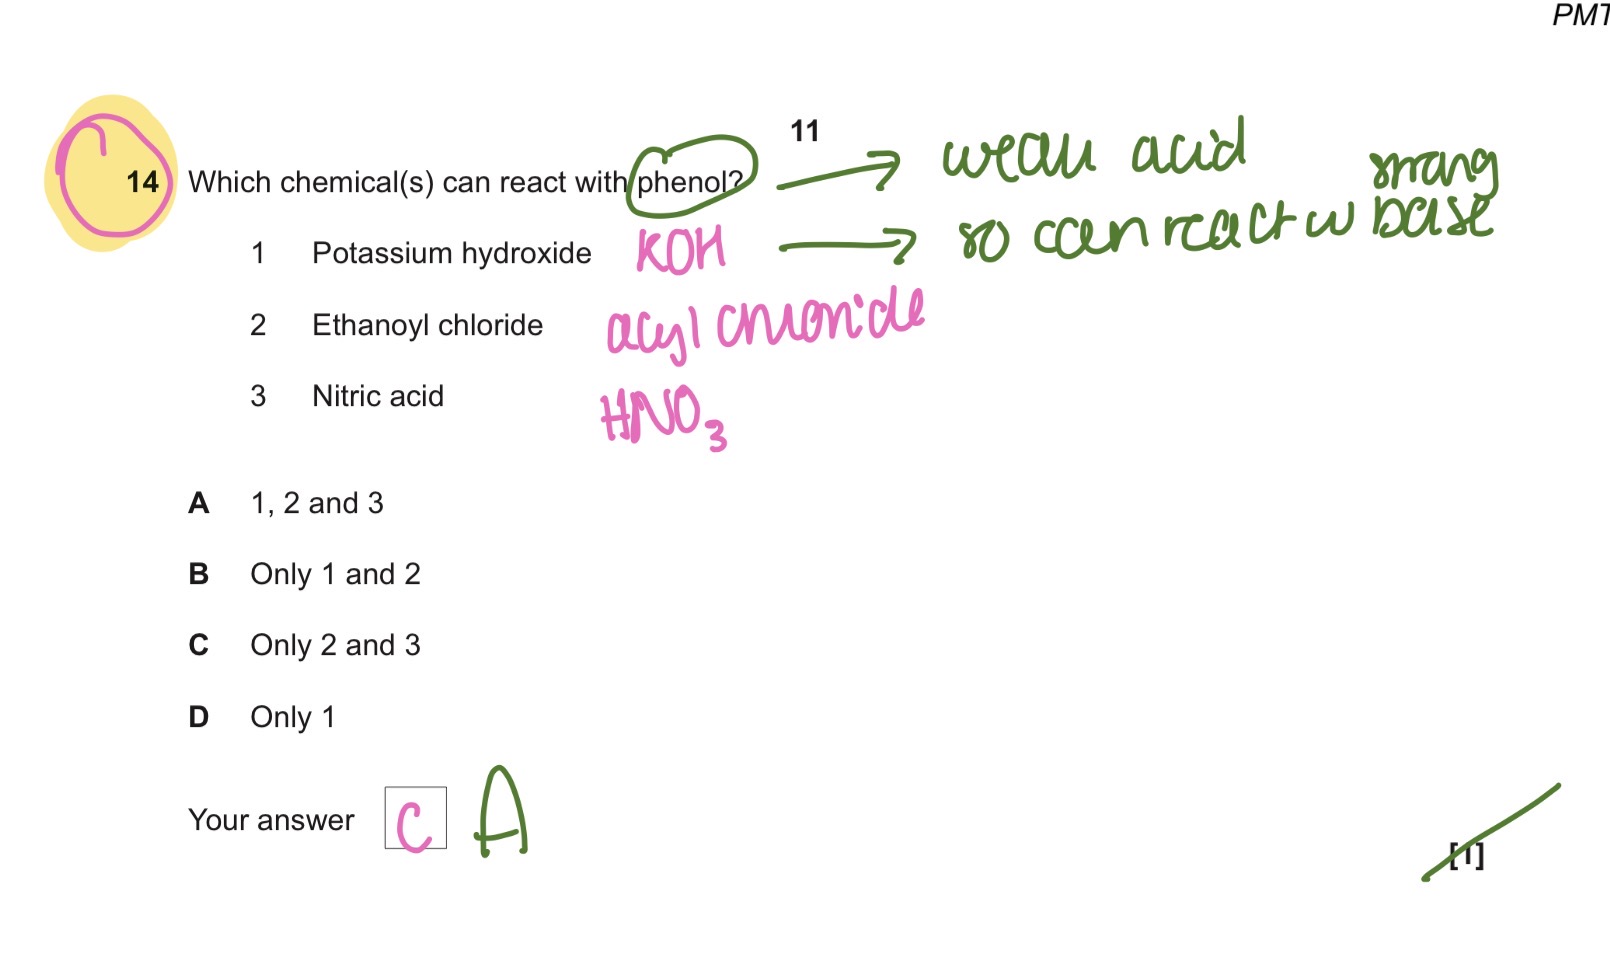 PMT
11
weak acid
14 Which chemical(s) can react with phenol?
strong
so can react w base
1 Potassium hydroxide KOH
2 Ethanoyl chloride acyl chloride
3 Nitric acid HNO₃
A 1, 2 and 3
B Only 1 and 2
C Only 2 and 3
D Only 1
Your answer C A
[1]